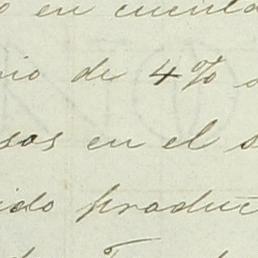 o en cuenta
io de 4% a
sos en el s
ido produc